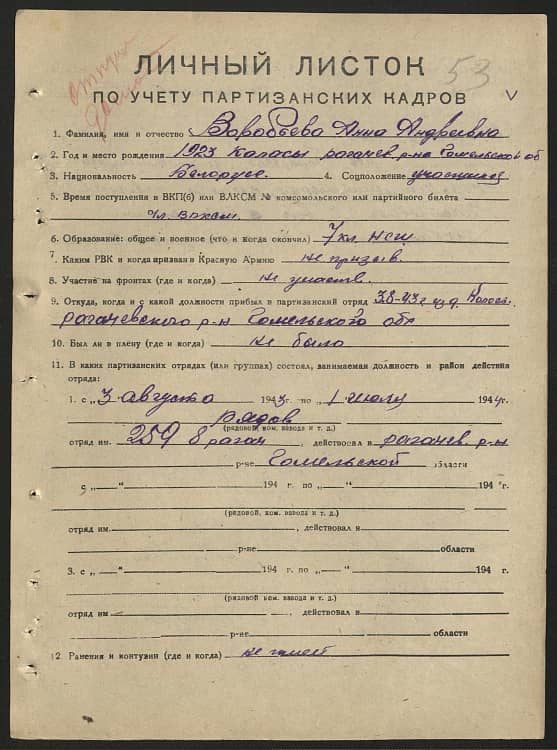 ЛИЧНЫЙ ЛИСТОК 53
ПО УЧЕТУ ПАРТИЗАНСКИХ КАДРОВ
1. Фамилия, имя и отчество Варобьева Анна Андреевна
2. Год и место рождения 1923 Каласы рогачев. р-на Гомельской об
3. Национальность Белорусс. 4. Соцположение учащийся
5. Время поступления в ВКП(б) или ВЛКСМ № комсомольского или партийного билета
чл. влксм.
6. Образование: общее и военное (что и когда окончил) 7 кл. нсш
7. Каким РВК и когда призван в Красную Армию не призыв.
8. Участие на фронтах (где и когда) не участв.
9. Откуда, когда и с какой должности прибыл в партизанский отряд 3.8-43 г из д.
рагачевского р-н Гомельского обл
10. Был ли в плену (где и когда) не было
11. В каких партизанских отрядах (или группах) состоял, занимаемая должность и район действия
отряда:
1. с „3 августа 1943 г. по „1 июля 1944 г.
рядов
(рядовой, ком. взвода и т. д.)
отряд им. 259 8 рагач , действовал в рагачев. р-н
р-не Гомельской области
с „—“ 194 г. по „—“ 194 г.
(рядовой, ком. взвода и т. д.)
отряд им. , действовал в
р-не области
3. с „—“ 194 г. по „—“ 194 г.
(рядовой, ком. взвода и т. д.)
отряд им , действовал в
р-не области
12. Ранения и контузии (где и когда) не имеет